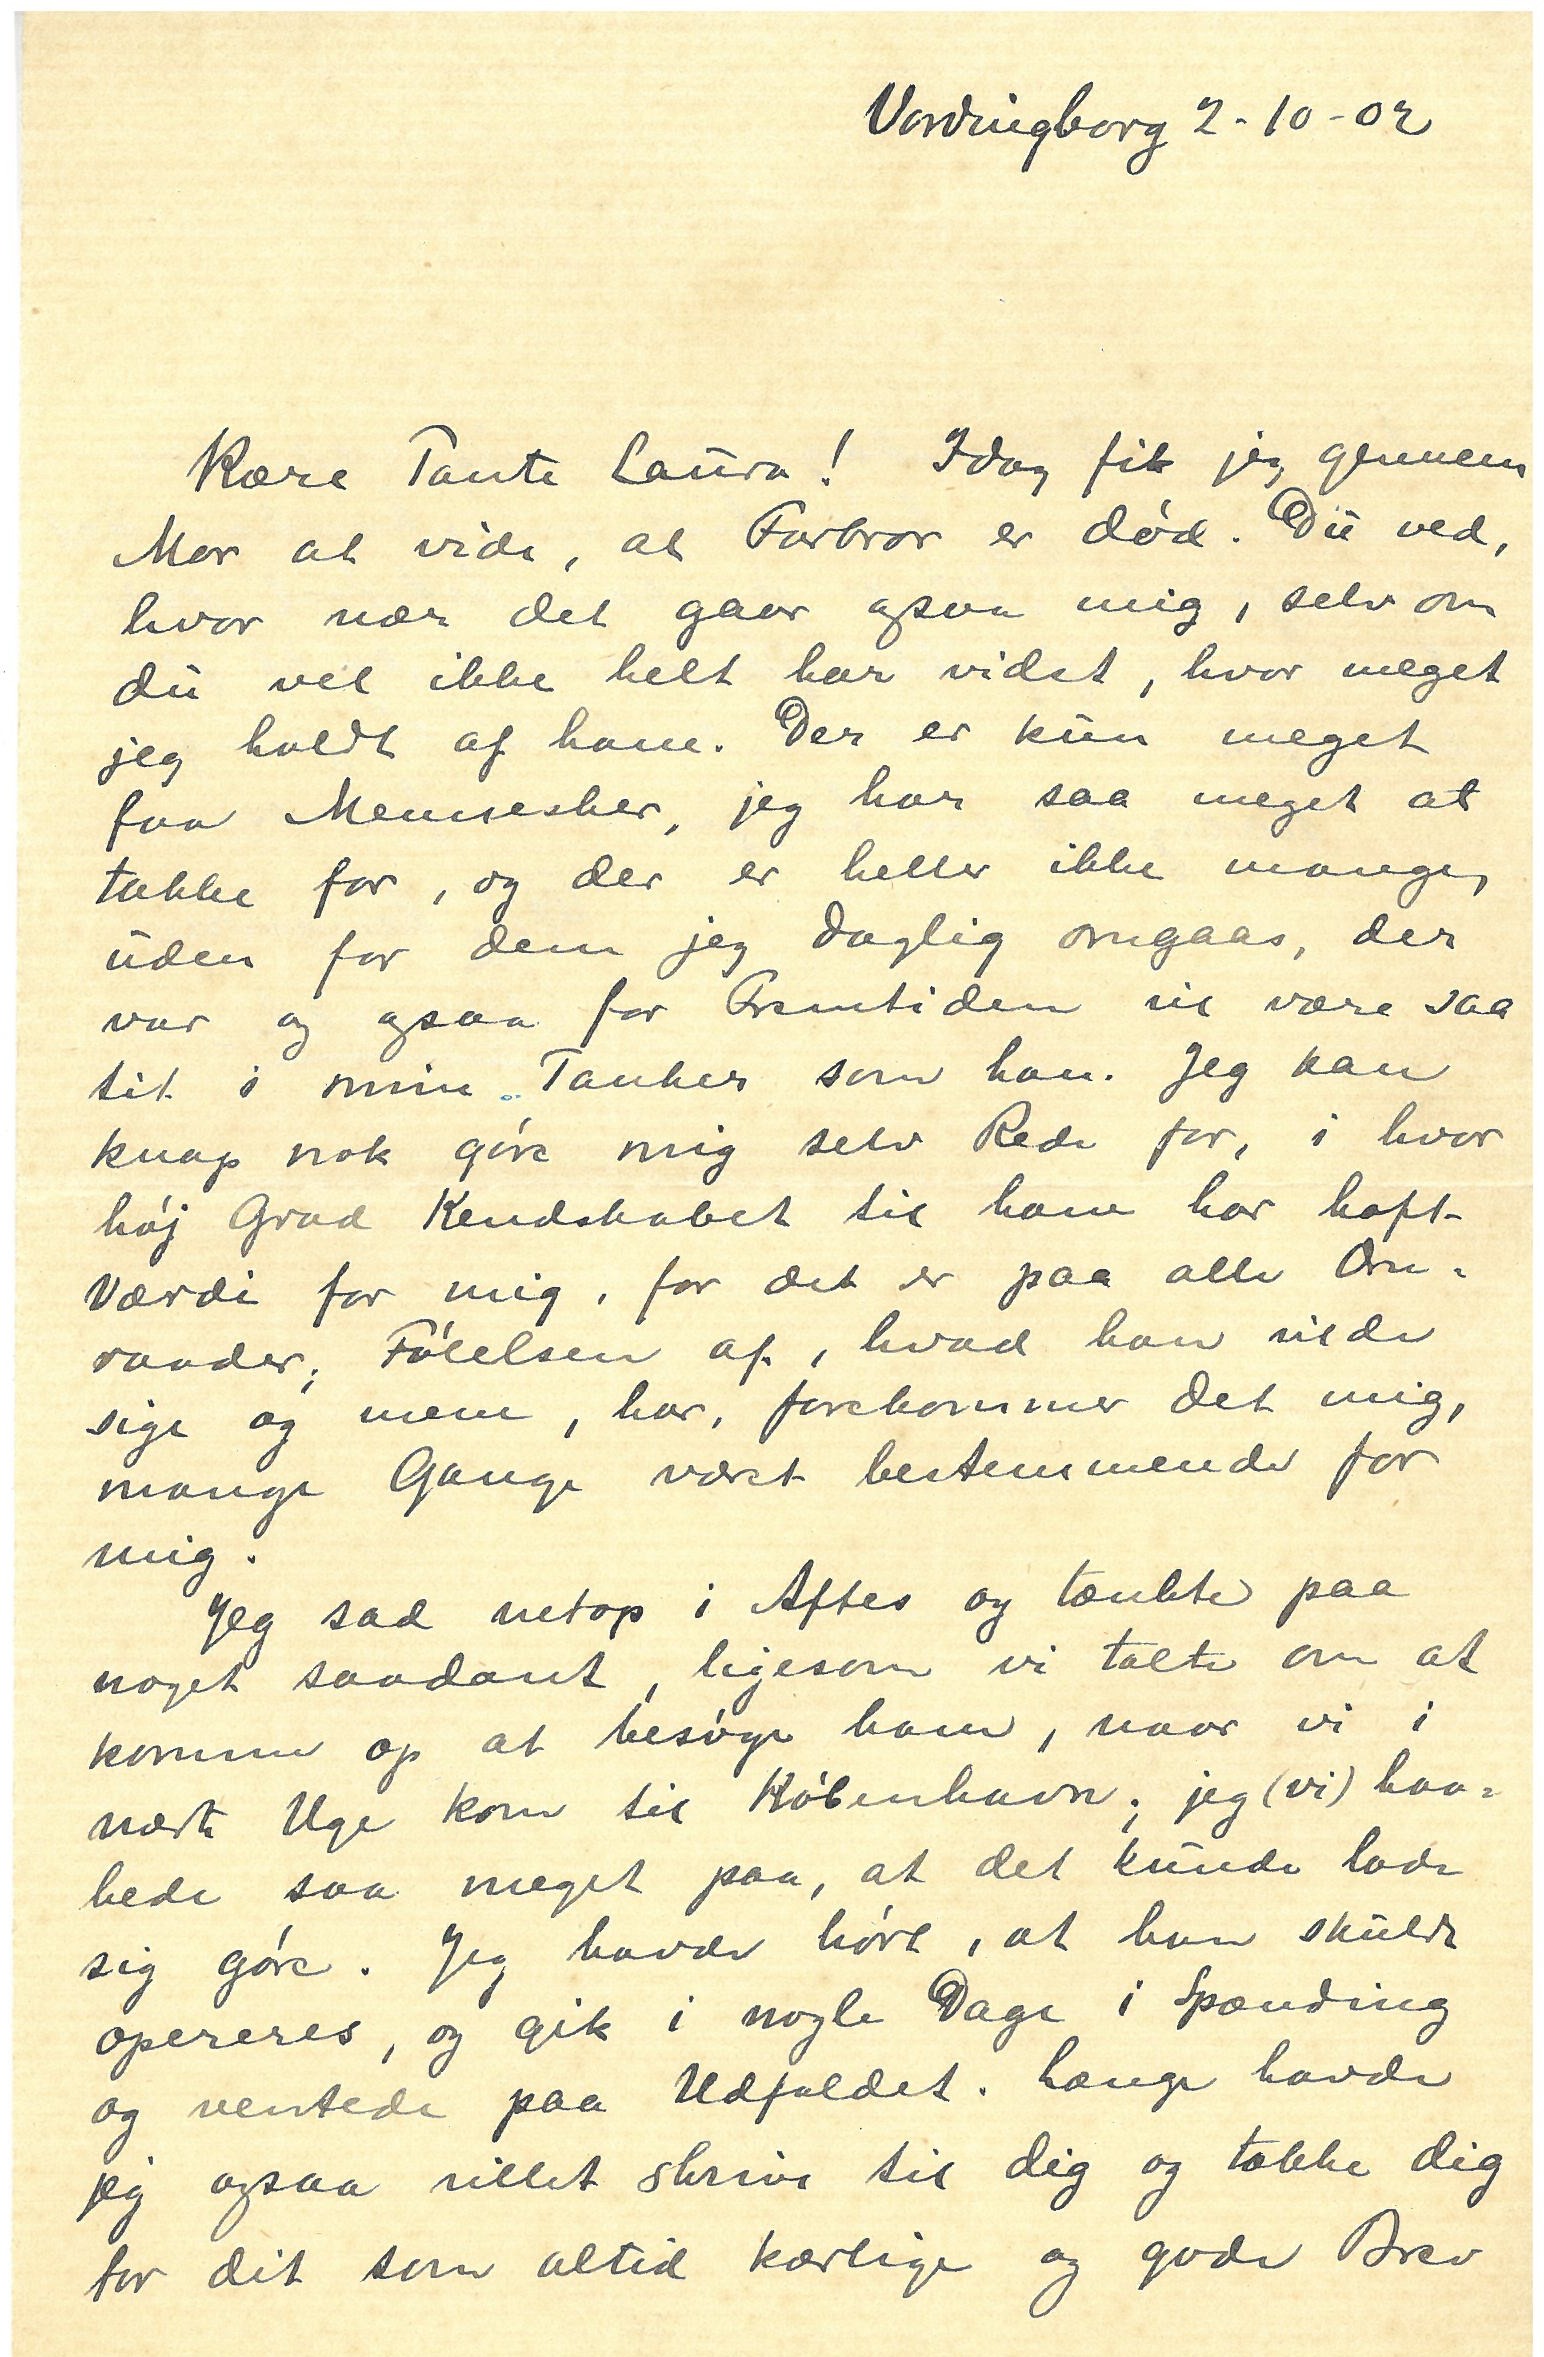 Vordingborg 2-10-02
Kære Tante Laura! Idag fik jeg gennem
Mor at vide, at Farbror er død. Du ved,
hvor nær det gaar ogsaa mig, selv om
du vel ikke helt har vidst, hvor meget
jeg holdt af ham. Der er kun meget
faa Mennesker, jeg har saa meget at
takke for, og der er heller ikke mange,
uden for dem jeg daglig omgaas, der
var og ogsaa for Fremtiden vil være saa
tit i min Tanker som han. Jeg kan
knap nok göre mig selv Rede for, i hvor
höj Grad Kendskabet til ham har haft
Værdi for mig, for det er paa alle Om-
raader; Fölelsen af, hvad han vilde
sige og mene, har, forekommer det mig,
mange Gange været bestemmende for
mig.
Jeg sad netop i Aftes og tænkte paa
noget saadant, ligesom vi talte om at
komme op at besöge ham, naar vi i
næste Uge kom til Köbenhavn; jeg (vi) haa-
bede saa meget paa, at det kunde lade
sig göre. Jeg havde hört, at han skulde
opereres, og gik i nogle Dage i Spænding
og ventede paa Udfaldet. Længe havde
jeg ogsaa villet skrive til dig og takke dig
for dit som altid kærlige og gode Brev